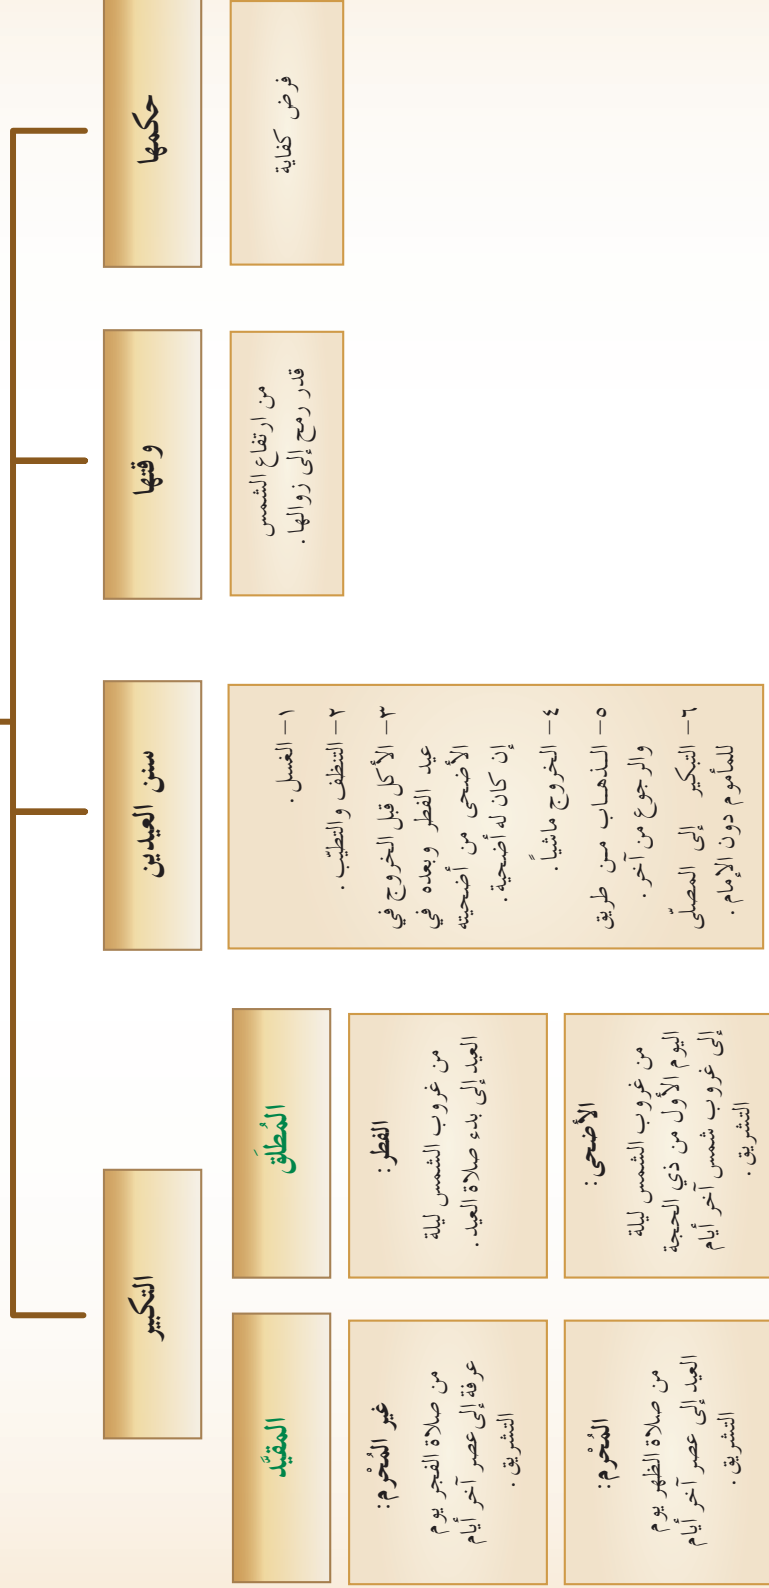 حكمها
فرض كفاية
وقتها
من ارتفاع الشمس
قدر رمح إلى زوالها.
سنن العيدين
١- الغسل.
٢- التنظف والتطيّب.
٣- الأكل قبل الخروج في
عيد الفطر وبعده في
الأضحى من أضحيته
إن كان له أضحية.
٤- الخروج ماشياً.
٥- الـذهـاب مـن طريق
والرجوع من آخر.
٦- التبكير إلى المصلّى
للمأموم دون الإمام.
التكبير
المُطلَق
الفطر:
من غروب الشمس ليلة
العيد إلى بدء صلاة العيد.
الأضحى:
من غروب الشمس ليلة
اليوم الأول من ذي الحجة
إلى غروب شمس آخر أيام
التشريق.
المقيَّد
غير المُحْرم:
من صلاة الفجر يوم
عرفة إلى عصر آخر أيام
التشريق.
المُحْرم:
من صلاة الظهر يوم
العيد إلى عصر آخر أيام
التشريق.